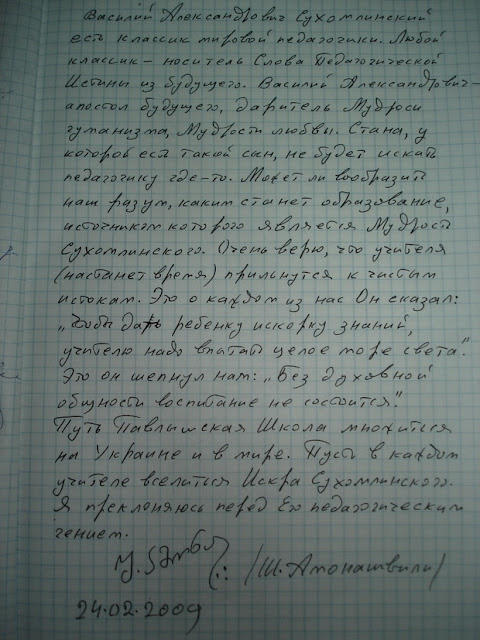 Василий Александрович Сухомлинский
есть классик мировой педагогики. Любой
классик – носитель Слова Педагогической
Истины из будущего. Василий Александрович –
апостол будущего, даритель Мудроси
гуманизма, Мудрости любвы. Стана, у
которой есть такой сын, не будет искать
педагогику где-то. Может ли вообразить
наш разум, каким станет образование,
источником которого является Мудрость
Сухомлинского. Очень верю, что учителя
(настанет время) прильнутся к чистым
истокам. Это о каждом из нас Он сказал:
„Чтобы дать ребенку искорку знаний,
учителю надо впитать целое море света".
Это он шепнул нам: „Без духовной
общности воспитание не состоится".
Путь Павлышская Школа множиться
на Украине и в мире. Пусть в каждом
учителе вселиться Искра Сухомлинского.
Я преклоняюсь перед Его педагогическим
гением.
/Ш. Амонашвили/
24.02.2009